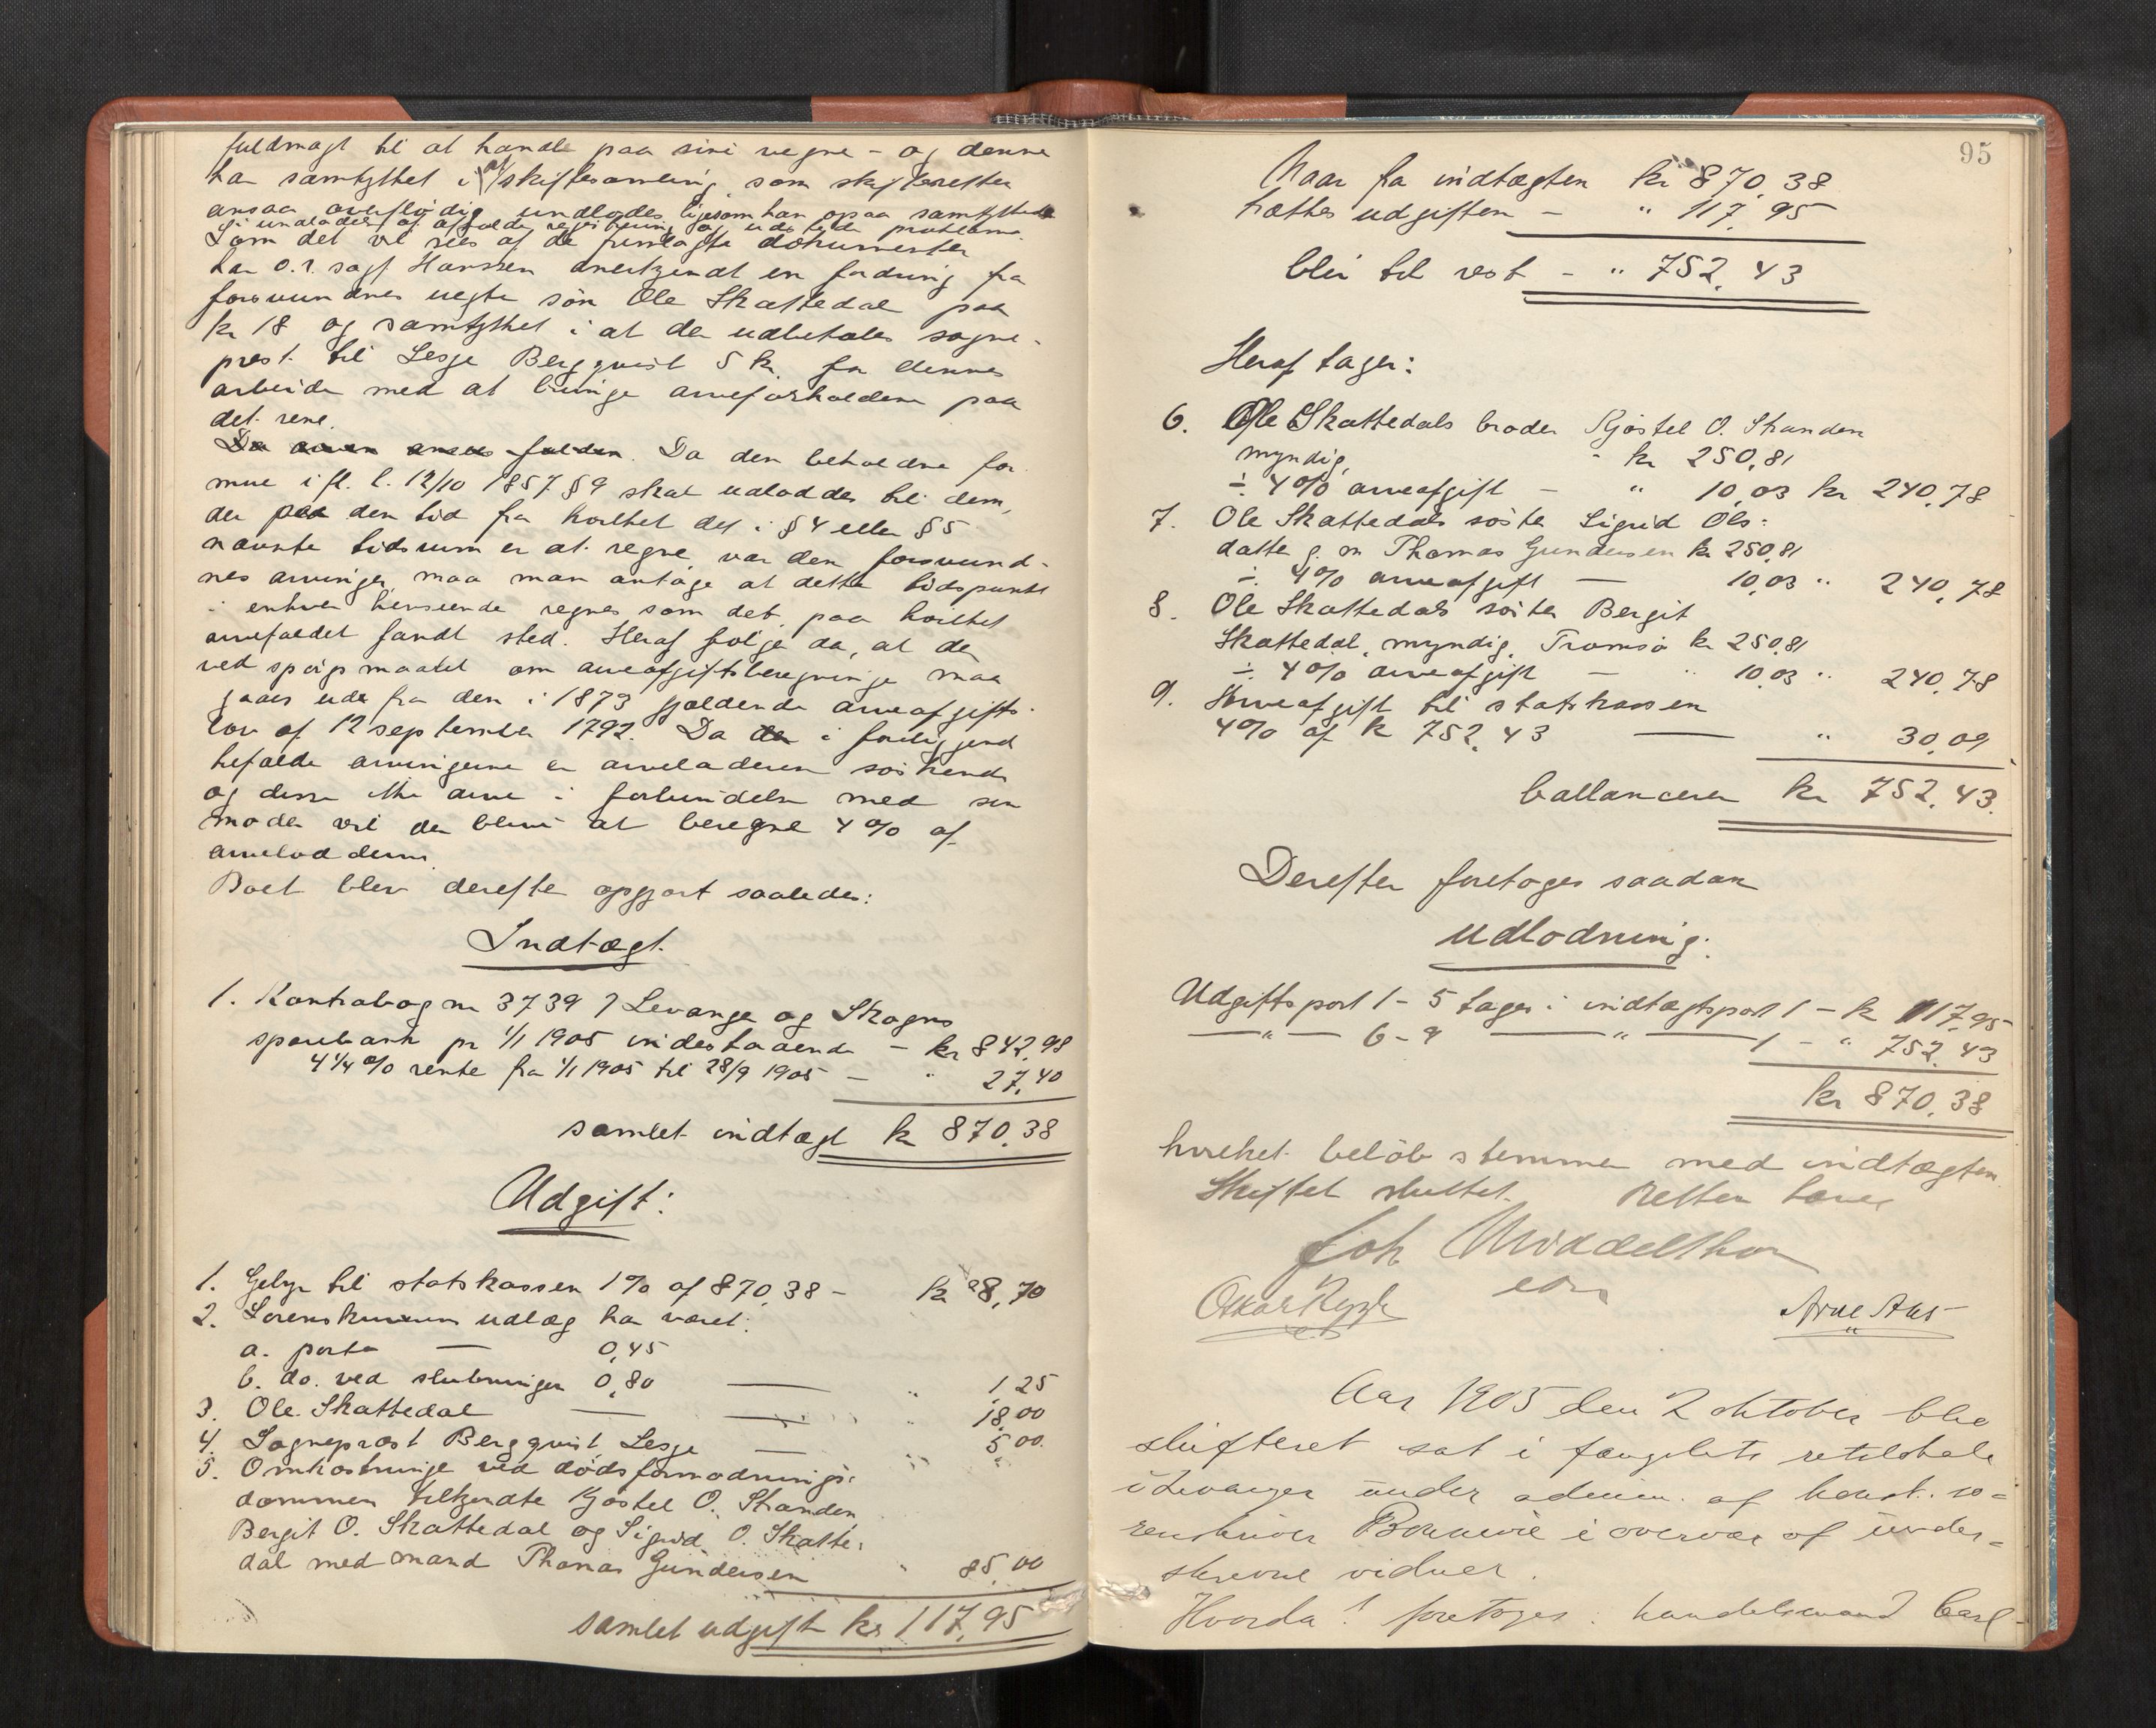 fuldmagt til at handle paa sine vegne - og denne
har samtykket i at skiftesamling, som skifteretten
ansaa overflødig undlodes, ligesom han ogsaa samtykkede
Som det vil sees af de fremlagte dokumenter
har o.r. sagf Hanssen anerkjendt en fordring fra
forsvundnes uegte søn Ole Skattedal paa
kr 18 og samtykket i at der udbetales sogne-
prest til Lesje Bergqvist 5 kr. for dennes
arbeide med at bringe arveforholdene paa
det rene.
Da arven ansees falden. Da den beholdne for
mue ifl. l. 12/10 1857 § 9 skal udloddes til dem,
der paa den tid fra hvilket det i § 4 eller § 5
nævnte tidsrum er at regne, var den forsvund-
nes arvinger, maa man antage at dette tidspunkt
i enhver henseende regnes som det, paa hvilket
arvefaldet fandt sted. Heraf følger da, at der
ved spørgsmaalet om arveafgiftsberegninge maa
gaaes ud fra den i 1873 gjældende arveafgifts-
lov af 12 september 1792. Da der i foreliggende
tilfælde arvingerne er arveladeren søskende
og disse ikke arver i forbindelse med sin
moder vil der blive at beregne 4 % af
arvelodderne.
Boet blev derefter opgjort saaledes:
Indtægt.
1. Kontrabog nr 3739 i Levanger og Skogns
sparebank pr 1/1 1905 indestaaende - kr 842,98
4 1/4 % rente fra 1/1 1905 til 28/9 1905 - " 27,40
samlet indtægt kr 870,38
Udgift:
1. Gebyr til statskassen 1 % af 870,38 - kr 8,70
2. Sorenskriverens udlæg har været:
a. porto - 0,45
b. do. ved slutningen 0,80 - " 1,25
3. Ole Skattedal - " 18,00
4. Sogneprest Bergqvist Lesje - 5,00
5. Omkostninge ved dødsformodnings-
dommen tilkjendte Kjøstel O. Stranden
Bergit O. Skattedal og Sigrid O. Skatte-
dal med mand Thomas Gundersen " 85,00
samlet udgift kr 117,95
95
Naar fra indtægten kr 870,38
trættes udgiften - " 117,95
bliir til rest - " 752,43
Heraf tager:
6. Ole Skattedals broder Kjøstel O. Stranden
myndig, - kr 250,81
÷ 4% arveafgift - " 10,03 kr 240,78
7. Ole Skattedals søster Sigrid Ols-
datter g. m. Thomas Gundersen kr 250,81
÷ 4% arveafgift - 10,03 " 240,78
8. Ole Skattedals søster Bergit
Skattedal, myndig, Tromsø kr 250,81
÷ 4% arveafgift - " 10,03 " 240,78
9. Arveafgift til statskassen
4% af kr 752,43 - " 30,09
ballancerer kr 752,43.
Derefter foretoges saadan
udlodning:
Udgiftspost 1 - 5 tages i indtægtspost 1 - kr 117,95
- " - 6 - 9 - " - 1 - " 752,43
kr 870,38
hvilket beløb stemmer med indtægten.
Skiftet sluttet. Retten hævet
Joh. Middelthon
con
Oskar Arne Aas
Aar 1905 den 2 oktober blev
skifteret sat i fængslets retslokale
i Levanger under admin. af konst. so-
renskriver i overvær af under-
skrevne vidner.
Hvorda! foretoges: handelsmand Carl